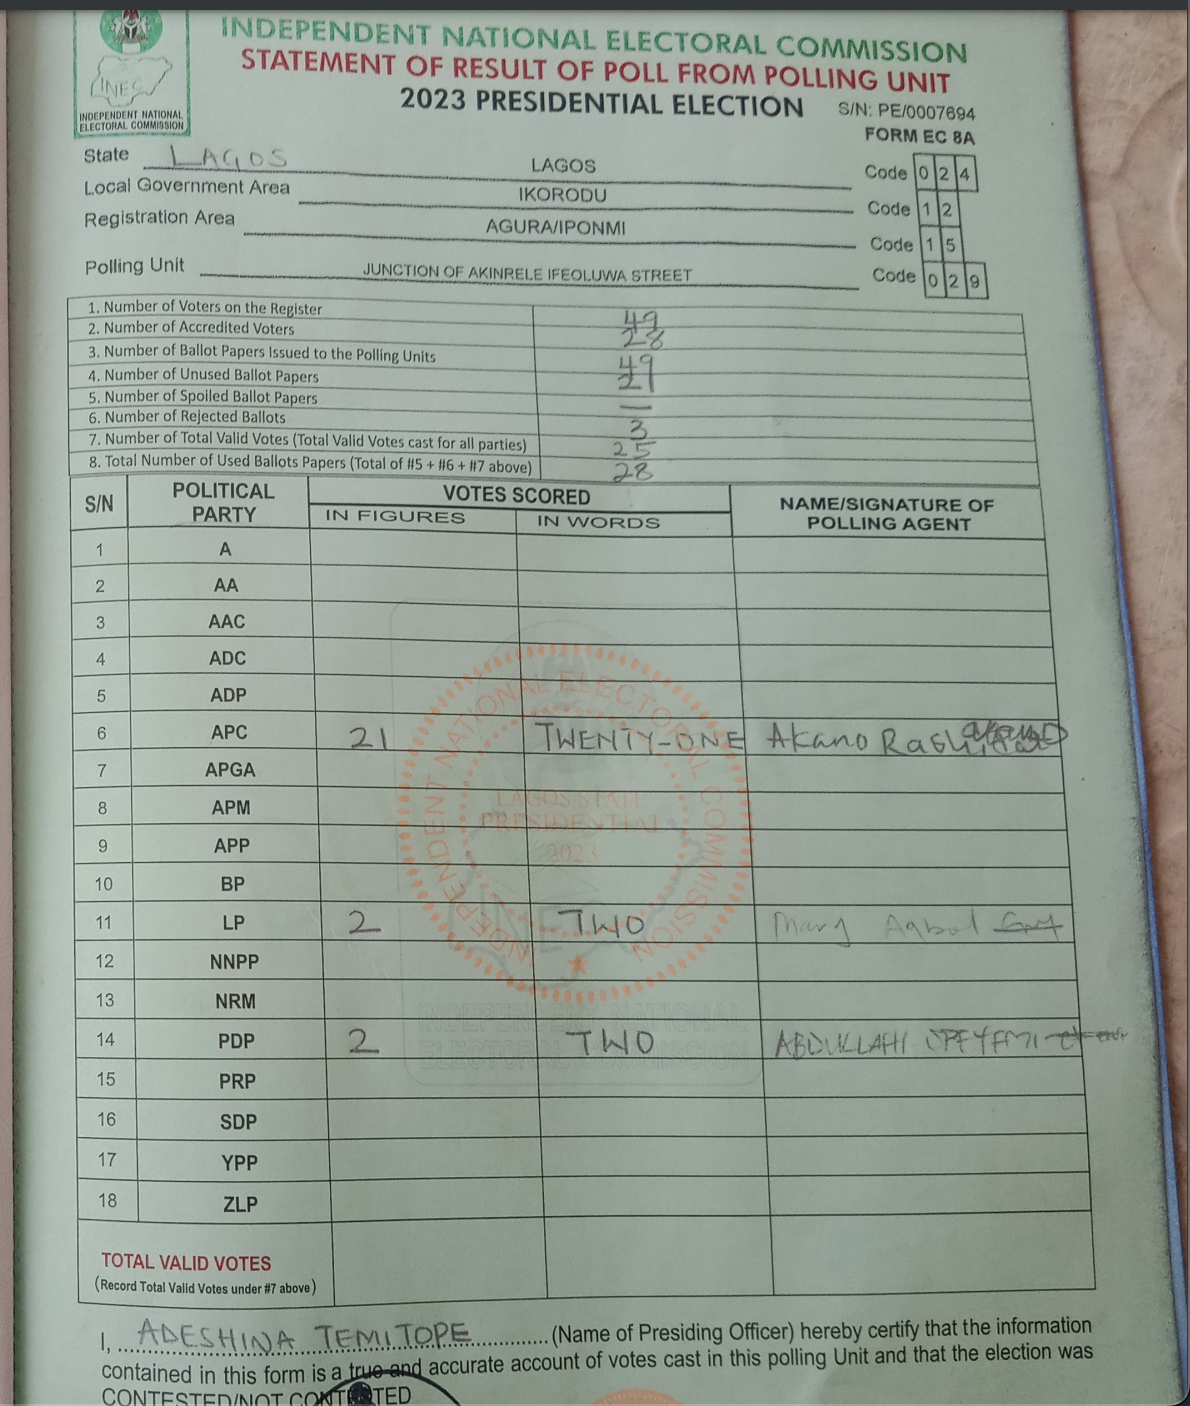 INEC
INDEPENDENT NATIONAL
ELECTORAL COMMISSION
INDEPENDENT NATIONAL ELECTORAL COMMISSION
STATEMENT OF RESULT OF POLL FROM POLLING UNIT
2023 PRESIDENTIAL ELECTION S/N: PE/0007694
FORM EC 8A
State LAGOS LAGOS Code 0 2 4
Local Government Area IKORODU Code 1 2
Registration Area AGURA/IPONMI Code 1 5
Polling Unit JUNCTION OF AKINRELE IFEOLUWA STREET Code 0 2 9
1. Number of Voters on the Register 49
2. Number of Accredited Voters 28
3. Number of Ballot Papers Issued to the Polling Units 49
4. Number of Unused Ballot Papers 21
5. Number of Spoiled Ballot Papers —
6. Number of Rejected Ballots 3
7. Number of Total Valid Votes (Total Valid Votes cast for all parties) 25
8. Total Number of Used Ballots Papers (Total of #5 + #6 + #7 above) 28
S/N POLITICAL PARTY VOTES SCORED NAME/SIGNATURE OF POLLING AGENT
IN FIGURES IN WORDS
1 A
2 AA
3 AAC
4 ADC
5 ADP
6 APC 21 TWENTY-ONE Akano
7 APGA
8 APM
9 APP
10 BP
11 LP 2 TWO Mary
12 NNPP
13 NRM
14 PDP 2 TWO ABDULLAHI
15 PRP
16 SDP
17 YPP
18 ZLP
INDEPENDENT NATIONAL ELECTORAL COMMISSION
LAGOS STATE
PRESIDENTIAL
2023
INDEPENDENT NATIONAL
ELECTORAL COMMISSION
TOTAL VALID VOTES
(Record Total Valid Votes under #7 above)
I, ADESHINA TEMITOPE (Name of Presiding Officer) hereby certify that the information
contained in this form is a true and accurate account of votes cast in this polling Unit and that the election was
CONTESTED/NOT CONTESTED